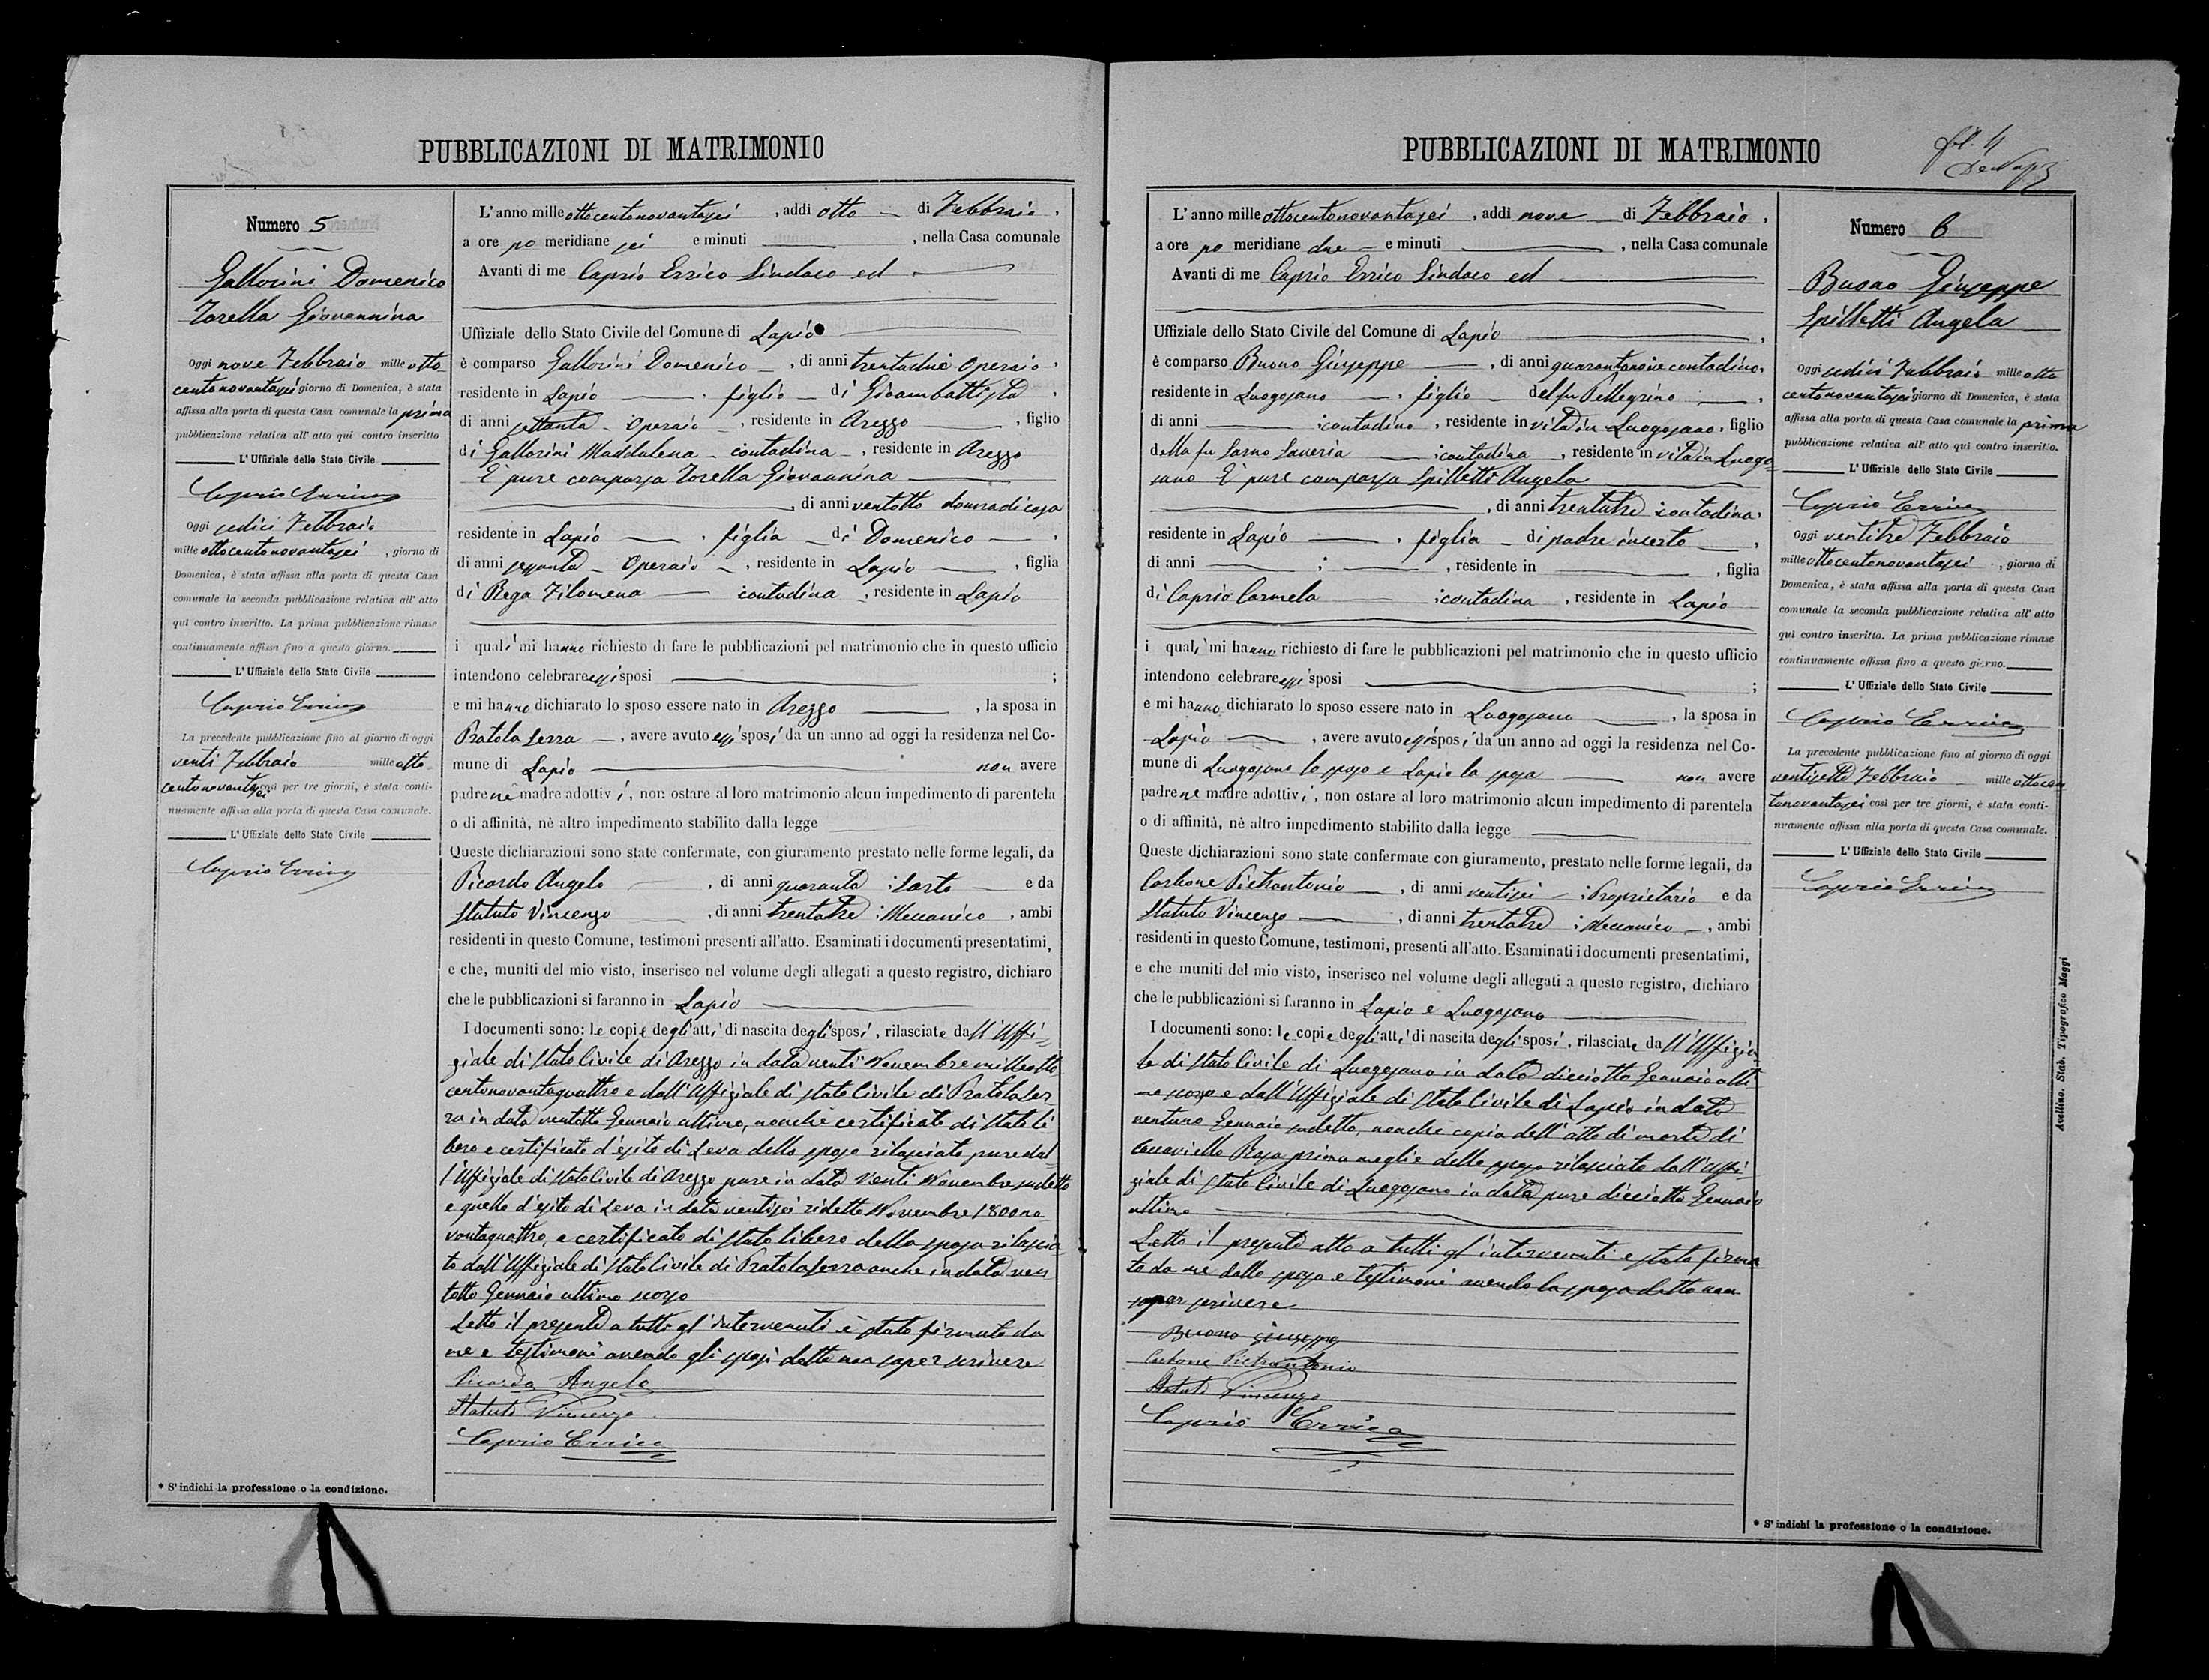 PUBBLICAZIONI DI MATRIMONIO
Numero 5
Gallorini Domenico
Torella Giovannina
Oggi nove Febbraio mille otto
centonovantasei giorno di Domenica, è stata
affissa alla porta di questa Casa comunale la prima
pubblicazione relativa all'atto qui contro inscritto
L'Uffiziale dello Stato Civile
Caprio Errico
Oggi sedici Febbraio
mille ottocentonovantasei, giorno di
Domenica, è stata affissa alla porta di questa Casa
comunale la seconda pubblicazione relativa all'atto
qui contro inscritto. La prima pubblicazione rimase
continuamente affissa fino a questo giorno.
L'Uffiziale dello Stato Civile
Caprio Errico
La precedente pubblicazione fino al giorno di oggi
venti Febbraio mille otto
centonovantasei così per tre giorni, è stata conti-
nuamente affissa alla porta di questa Casa comunale.
L'Uffiziale dello Stato Civile
Caprio Errico
* S'indichi la professione o la condizione.
L'anno mille ottocentonovantasei, addì otto di Febbraio,
a ore po meridiane sei e minuti , nella Casa comunale
Avanti di me Caprio Errico Sindaco ed
Uffiziale dello Stato Civile del Comune di Lapio
è comparso Gallorini Domenico, di anni trentadue Operaio,
residente in Lapio, figlio di Gioambattista,
di anni settanta Operaio, residente in Arezzo, figlio
di Gallorini Maddalena contadina, residente in Arezzo
È pure comparsa Torella Giovannina
, di anni ventotto donna di casa
residente in Lapio, figlia di Domenico,
di anni sessanta Operaio, residente in Lapio, figlia
di Rega Filomena contadina, residente in Lapio
i quali mi hanno richiesto di fare le pubblicazioni pel matrimonio che in questo ufficio
intendono celebrare essi sposi ;
e mi hanno dichiarato lo sposo essere nato in Arezzo, la sposa in
Pratola Serra, avere avuto essi sposi da un anno ad oggi la residenza nel Co-
mune di Lapio non avere
padre nè madre adottivi, non ostare al loro matrimonio alcun impedimento di parentela
o di affinità, nè altro impedimento stabilito dalla legge
Queste dichiarazioni sono state confermate, con giuramento prestato nelle forme legali, da
Picardo Angelo, di anni quaranta; Sarto e da
Statuto Vincenzo, di anni trentatre; Meccanico, ambi
residenti in questo Comune, testimoni presenti all'atto. Esaminati i documenti presentatimi,
e che, muniti del mio visto, inserisco nel volume degli allegati a questo registro, dichiaro
che le pubblicazioni si faranno in Lapio
I documenti sono: le copie degli atti di nascita degli sposi, rilasciate dall'Uffi-
ziale di stato Civile di Arezzo in data venti Novembre milleotto
centonovantaquattro e dall'Uffiziale di stato Civile di Pratola Ser-
ra in data ventotto Gennaio ultimo, nonché certificato di stato li-
bero e certificato d'esito di Leva dello sposo rilasciato pure dal-
l'Uffiziale di stato Civile di Arezzo pure in data Venti Novembre sudetto
e quello d'esito di Leva in data ventisei ridetto Novembre 1800no-
vantaquattro, e certificato di stato libero della sposa rilascia-
to dall'Uffiziale di stato Civile di Pratola Serra anche in data ven
totto Gennaio ultimo scorso
Letto il presente a tutti gl'intervenuti è stato firmato da
me e testimoni avendo gli sposi detto non saper scrivere
Picardo Angelo
Statuto Vincenzo
Caprio Errico
PUBBLICAZIONI DI MATRIMONIO
L'anno mille ottocentonovantasei, addì nove di Febbraio,
a ore po meridiane due e minuti , nella Casa comunale
Avanti di me Caprio Errico Sindaco ed
Uffiziale dello Stato Civile del Comune di Lapio,
è comparso Buono Giuseppe, di anni quarantanove contadino,
residente in Luogosano, figlio del fu Pellegrino,
di anni ; contadino, residente in vita in Luogosano, figlio
della fu Sarno Saveria; contadina, residente in vita in Luogo-
sano È pure comparsa Spilletti Angela
, di anni trentatre; contadina,
residente in Lapio, figlia di padre incerto,
di anni ; , residente in , figlia
di Caprio Carmela; contadina, residente in Lapio
i quali mi hanno richiesto di fare le pubblicazioni pel matrimonio che in questo ufficio
intendono celebrare essi sposi ;
e mi hanno dichiarato lo sposo essere nato in Luogosano, la sposa in
Lapio, avere avuto essi sposi da un anno ad oggi la residenza nel Co-
mune di Luogosano lo sposo e Lapio la sposa non avere
padre nè madre adottivi, non ostare al loro matrimonio alcun impedimento di parentela
o di affinità, nè altro impedimento stabilito dalla legge
Queste dichiarazioni sono state confermate con giuramento, prestato nelle forme legali, da
Carbone Pietrantonio, di anni ventisei; Proprietario e da
Statuto Vincenzo, di anni trentatre; Meccanico, ambi
residenti in questo Comune, testimoni, presenti all'atto. Esaminati i documenti presentatimi,
e che muniti del mio visto, inserisco nel volume degli allegati a questo registro, dichiaro
che le pubblicazioni si faranno in Lapio e Luogosano
I documenti sono: le copie degli atti di nascita degli sposi, rilasciate dall'Uffizia-
le di stato Civile di Luogosano in data dieciotto Gennaio ulti
mo scorso e dall'Uffiziale di stato Civile di Lapio in data
ventuno Gennaio sudetto, nonché copia dell'atto di morte di
Rosa prima moglie dello sposo rilasciato dall'Uffi-
ziale di stato Civile di Luogosano in data pure dieciotto Gennaio
ultimo
Letto il presente atto a tutti gl'intervenuti e stato firma-
to da me dallo sposo e testimoni avendo la sposa detto non
saper scrivere
Buono Giuseppe
Carbone Pietrantonio
Statuto Vincenzo
Caprio Errico
Numero 6
Buono Giuseppe
Spilletti Angela
Oggi sedici Febbraio mille otto
centonovantasei giorno di Domenica, è stata
affissa alla porta di questa Casa comunale la prima
pubblicazione relativa all'atto qui contro inscritto.
L'Uffiziale dello Stato Civile
Caprio Errico
Oggi ventitre Febbraio
mille ottocentonovantasei, giorno di
Domenica, è stata affissa alla porta di questa Casa
comunale la seconda pubblicazione relativa all'atto
qui contro inscritto. La prima pubblicazione rimase
continuamente affissa fino a questo giorno.
L'Uffiziale dello Stato Civile
Caprio Errico
La precedente pubblicazione fino al giorno di oggi
ventisette Febbraio mille ottocen
tonovantasei così per tre giorni, è stata conti-
nuamente affissa alla porta di questa Casa comunale.
L'Uffiziale dello Stato Civile
Caprio Errico
* S'indichi la professione o la condizione.
Avellino. Stab. Tipografico Maggi